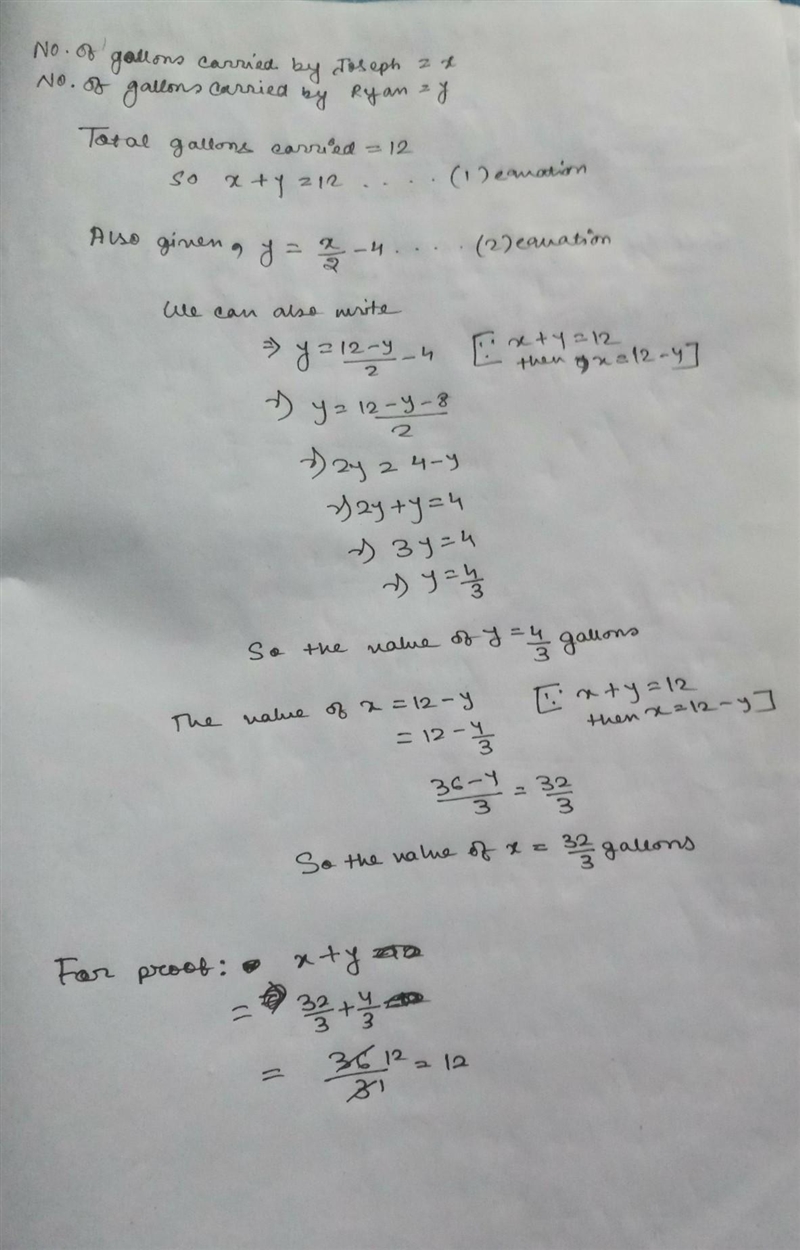 No. of gallons carried by Joseph = x
No. of gallons carried by Ryan = y
Total gallons carried = 12
So x + y = 12 ..... (1) equation
Also given, y = x/2 - 4 .... (2) equation
We can also write
⇒ y = (12 - y)/2 - 4 [∵ x + y = 12
then x = 12 - y]
⇒ y = (12 - y - 8)/2
⇒ 2y = 4 - y
⇒ 2y + y = 4
⇒ 3y = 4
⇒ y = 4/3
So the value of y = 4/3 gallons
The value of x = 12 - y [∵ x + y = 12
then x = 12 - y]
= 12 - 4/3
(36 - 4)/3 = 32/3
So the value of x = 32/3 gallons
For proof: x + y
= 32/3 + 4/3
= 36 12/3 1 = 12